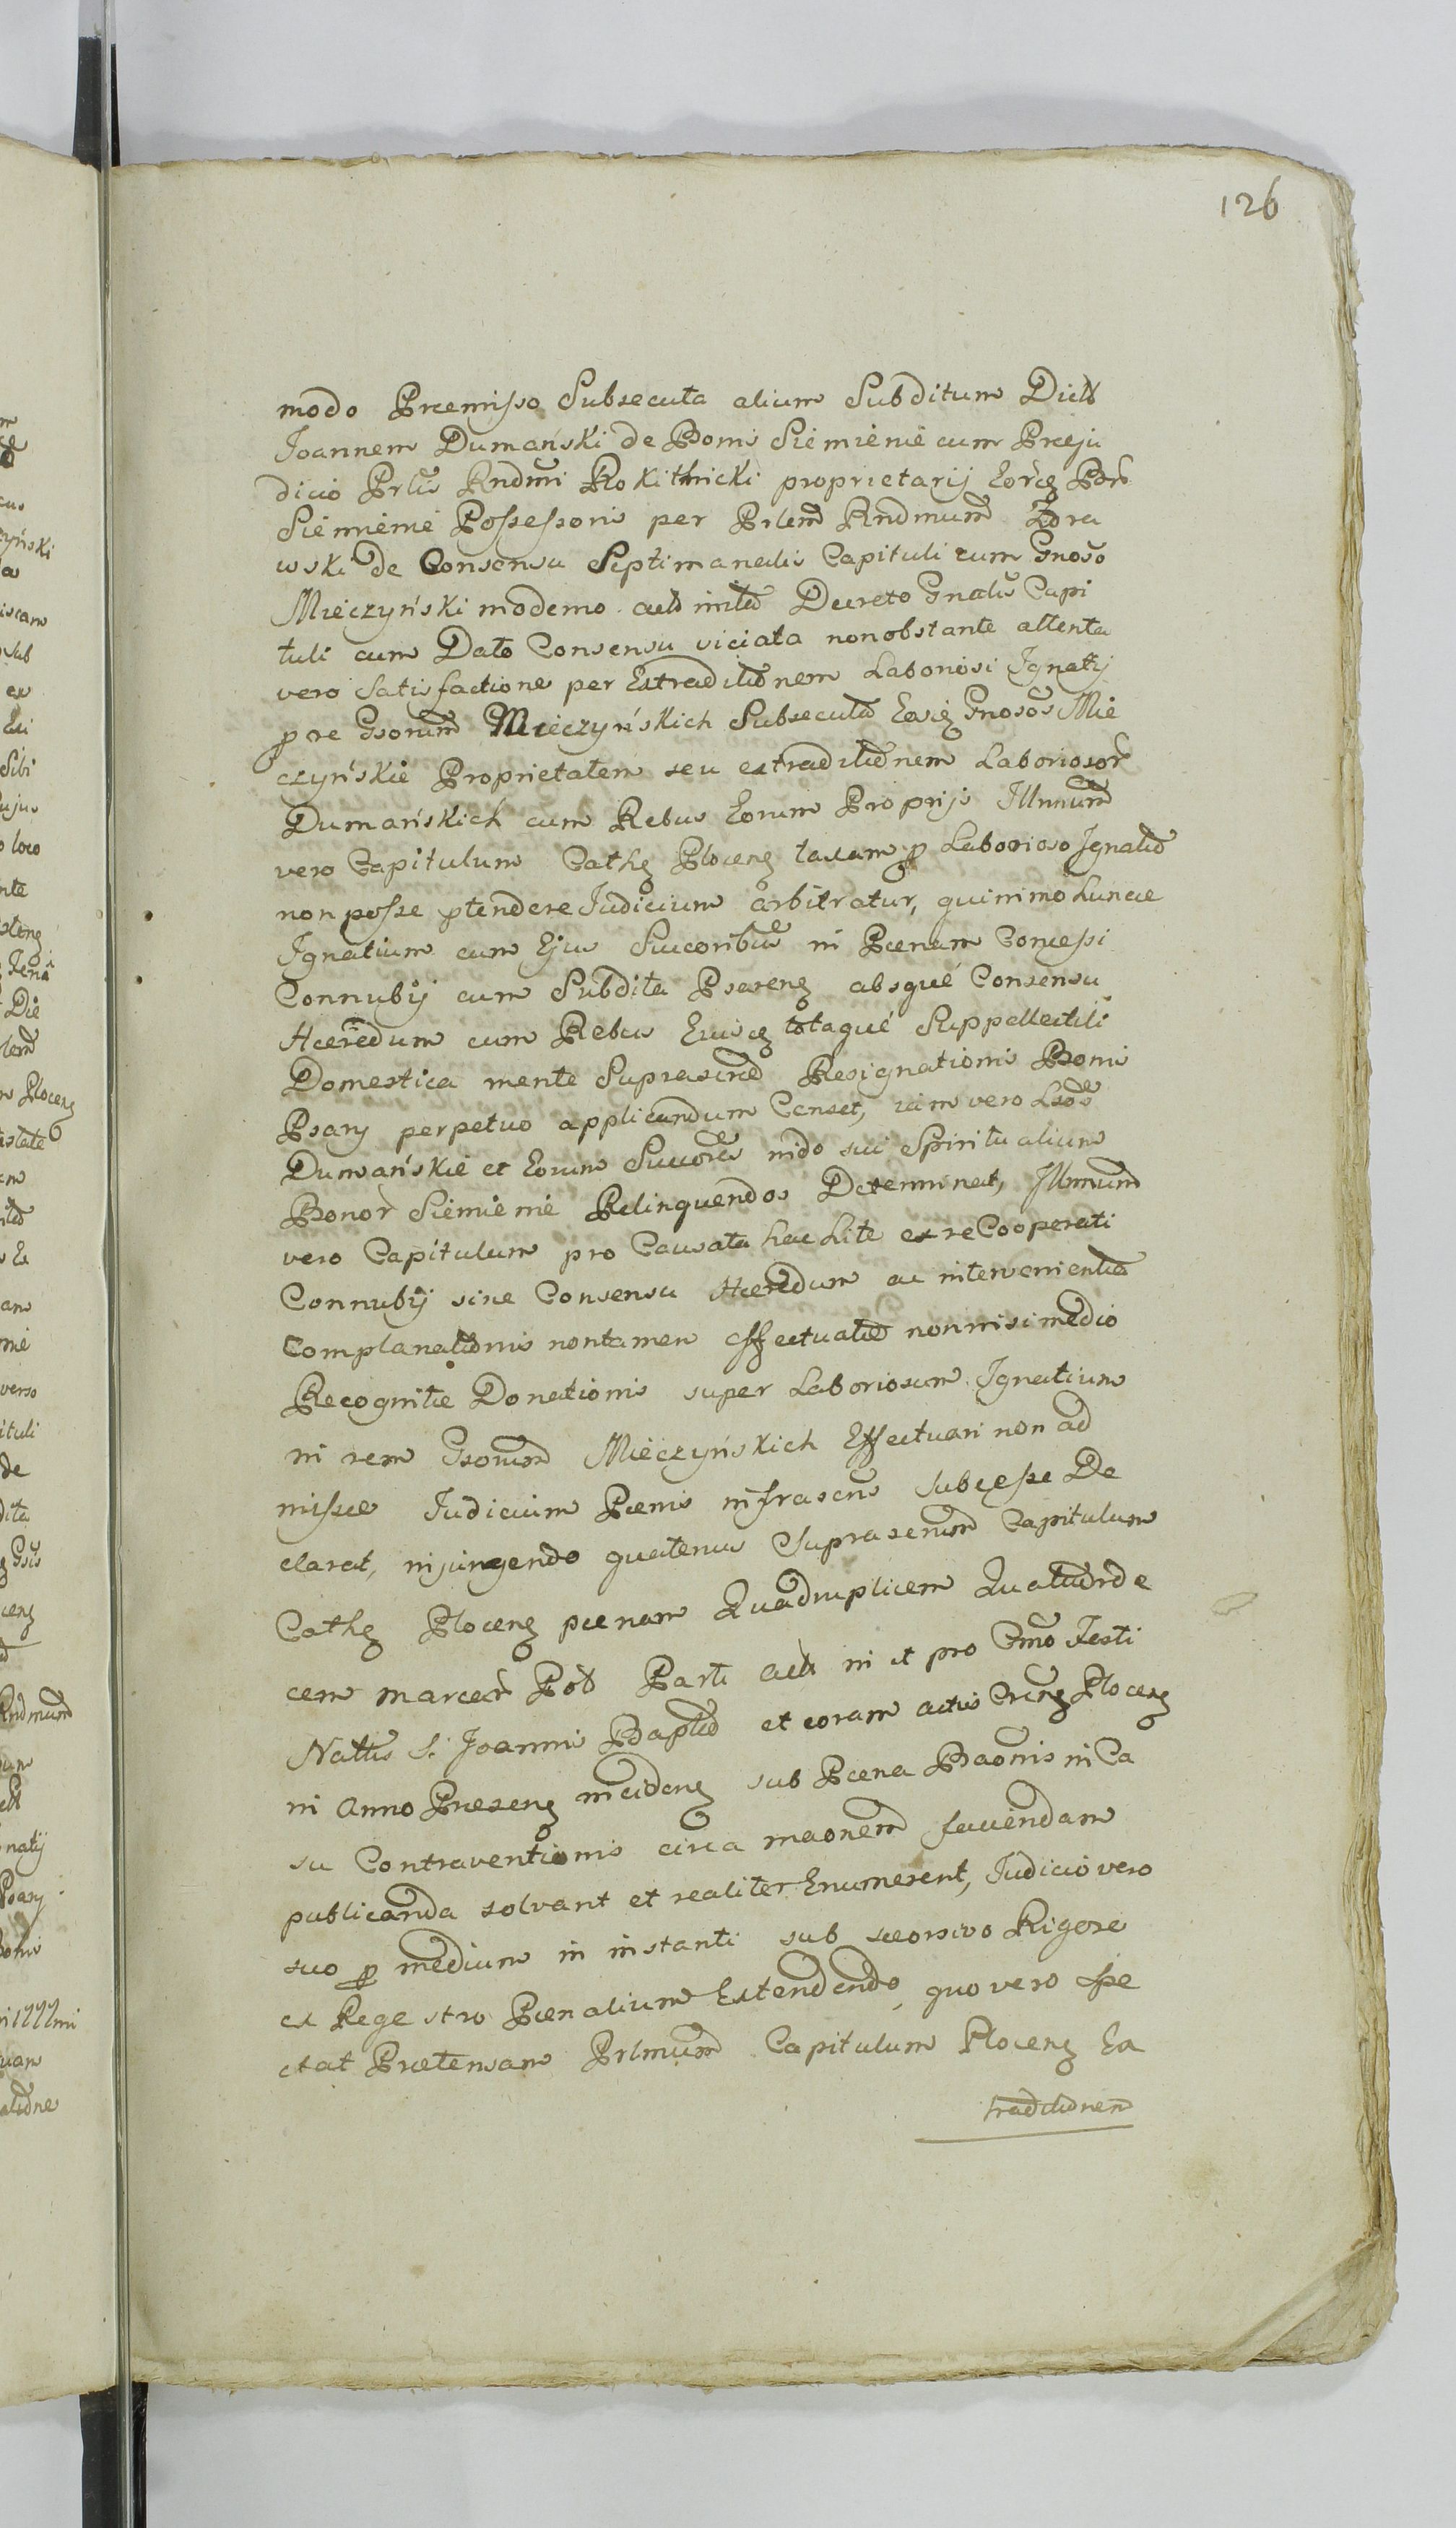 126
modo Præmisso Subsecuta alium Subditum Dict
Joannem Dumański de Bonis Siemienie cum Præju
dicio Prlis Rndmi Rokitnicki proprietarij Eorcz Bor
Siemienie Possessoris per Prlem Rndmum Zdra
wski de Consensu Septimanalis Capituli cum Gnoso
Mieczyński moderno actt initt Decreto Gnalis Capi
tuli cum Dato Consensu viciata nonobstante attenta
vero Satisfactione per Extraditionem Laboriosi Ignatij
p re Gsorum Mieczyńskich Subsecuta Gnosos Mie
czyńskie Proprietatem seu extraditionem Laboriosor
Dumańskich cum Rebus Eorum Proprijs Illmum
vero Capitulum Cathz Plocenz taxam p Laborioso Ignatio
non posse ptendere Judicium arbitratur, quinimo hunce
Ignatium cum Ejus Succoribus in Pœnam Concessi
Connubij cum Subdita Psarenz absque Consensu
Hæredum cum Rebus Eiuscz totaque Suppellectili
Domestica mente Suprascrte Resignationis Bonis
Psary perpetuo applicandum Censet, vero Lsos
Dumańskie et Eorum Succores nido sui Spiritualium
Bonor Siemienie Relinquendos Determinat, Illmum
vero Capitulum pro Causata hac Lite ex re Cooperati
Connubij sine Consensu Hæredum ac interveniente
Complanationis nontamen effectuatæ nonnisi medio
Recognitæ Donationis super Laboriosum Ignatium
in rem Gsorum Mieczyńskich Effectuari non ad
missæ Judicium Pœnis infrascris subcesse De
clarat, injungendo quatenus Suprascrum Capitulum
Cathz Plocenz pœnam Quadruplicem Quatuorde
cem marcar Pol Parti actt in et pro Cmo Festi
Nattis S. Joannis Baptæ et coram actis Crenz Plocenz
in Anno Præsenz incidenz sub Pœna Baonis in Ca
su Contraventionis circa maonem faciendam
publicanda solvant et realiter Enumerent, Judicio vero
suo p medium in instanti sub seorsivo Rigore
ex Regestro Pœnalium Extendendo, quo vero spe
ctat Prætensam Prlmum Capitulum Plocenz Ex
traditionem